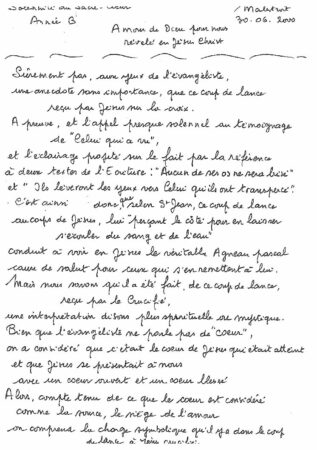 Solennité du Sacré-Coeur
Année B
/Malestroit
30.06.2000
Amour de Dieu pour nous
révélé en Jésus Christ
Sûrement pas, aux yeux de l'évangéliste,
une anecdote sans importance, que ce coup de lance
reçu par Jésus sur la croix.
A preuve, et l'appel presque solennel au témoignage
de "Celui qui a vu",
et l'éclairage projeté sur le fait par la référence
à deux textes de l'Ecriture : "Aucun de ses os ne sera brisé"
et "Ils lèveront les yeux vers Celui qu'ils ont transpercé".
C'est ainsi donc, que selon St Jean, ce coup de lance
au corps de Jésus, lui "perçant le côté pour en laisser
s'écouler du sang et de l'eau"
conduit à voir en Jésus le véritable Agneau pascal
cause de salut pour ceux qui s'en remettent à lui.
Mais nous savons qu'il a été fait, de ce coup de lance,
reçu par le Crucifié,
une interprétation disons plus spirituelle ou mystique.
Bien que l'évangéliste ne parle pas de "coeur",
on a considéré que c'était le coeur de Jésus qui était atteint
et que Jésus se présentait à nous
avec un coeur ouvert et un coeur blessé
Alors, compte tenu de ce que le coeur est considéré
comme la source, le siège de l'amour
on comprend la charge symbolique qu'il y a dans le coup
de lance à Jésus crucifié.